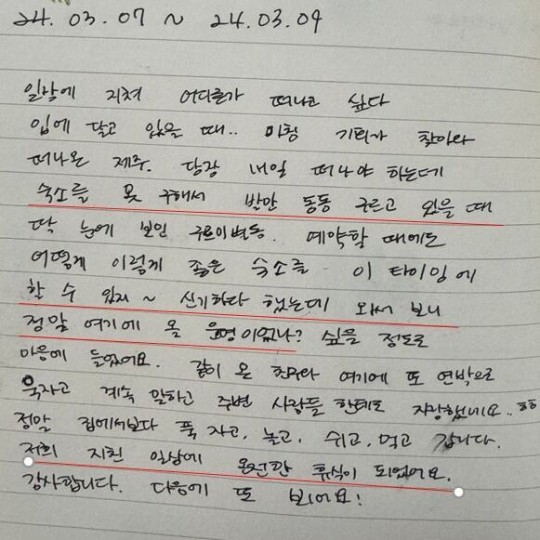 24. 03. 07 ~ 24. 03. 09
일상에 지쳐 어디론가 떠나고 싶다
입에 달고 있을 때.. 마침 기회가 찾아와
떠나온 제주. 당장 내일 떠나야 하는데
숙소를 못 구해서 발만 동동 구르고 있을 때
딱 눈에 보인 구르미별동. 예약할 때에도
어떻게 이렇게 좋은 숙소를 이 타이밍에
할 수 있지 ~ 신기하다 했는데 와서 보니
정말 여기에 올 운명이었나? 싶을 정도로
마음에 들었어요. 같이 온 친구와 여기에 또 연박으로
묵자고 계속 말하고 주변 사람들 한테도 자랑했네요..ㅎㅎ
정말 집에서보다 푹 자고, 놀고, 쉬고, 먹고 갑니다.
저희 지친 일상에 온전한 휴식이 되었어요.
감사합니다. 다음에 또 뵈어요!